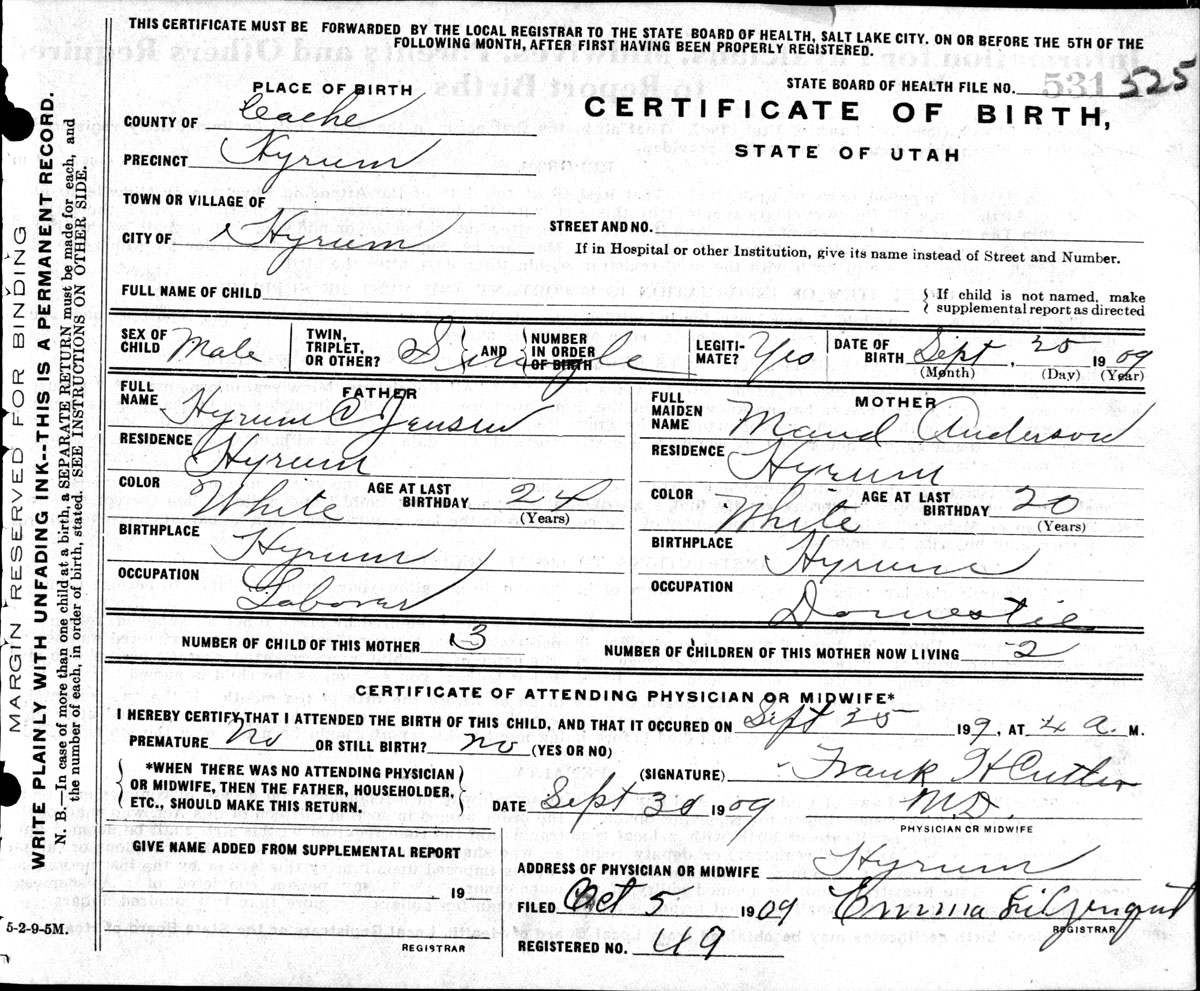 THIS CERTIFICATE MUST BE FORWARDED BY THE LOCAL REGISTRAR TO THE STATE BOARD OF HEALTH, SALT LAKE CITY, ON OR BEFORE THE 5TH OF THE
FOLLOWING MONTH, AFTER FIRST HAVING BEEN PROPERLY REGISTERED.
STATE BOARD OF HEALTH FILE NO. 531 525
PLACE OF BIRTH
CERTIFICATE OF BIRTH,
STATE OF UTAH
COUNTY OF Cache
PRECINCT Hyrum
TOWN OR VILLAGE OF
CITY OF Hyrum
STREET AND NO.
If in Hospital or other Institution, give its name instead of Street and Number.
FULL NAME OF CHILD
If child is not named, make
supplemental report as directed
SEX OF CHILD Male
TWIN, TRIPLET, OR OTHER? Single AND NUMBER IN ORDER OF BIRTH
LEGITI-MATE? Yes
DATE OF BIRTH Sept, 25 1909
(Month) (Day) (Year)
FATHER
FULL NAME Hyrum C Jensen
RESIDENCE Hyrum
COLOR White AGE AT LAST BIRTHDAY 24
(Years)
BIRTHPLACE Hyrum
OCCUPATION Laborer
MOTHER
FULL MAIDEN NAME Maud Anderson
RESIDENCE Hyrum
COLOR White AGE AT LAST BIRTHDAY 20
(Years)
BIRTHPLACE Hyrum
OCCUPATION Domestic
NUMBER OF CHILD OF THIS MOTHER 3 NUMBER OF CHILDREN OF THIS MOTHER NOW LIVING 2
CERTIFICATE OF ATTENDING PHYSICIAN OR MIDWIFE*
I HEREBY CERTIFY THAT I ATTENDED THE BIRTH OF THIS CHILD, AND THAT IT OCCURED ON Sept 25 199, AT 4 a. M.
PREMATURE No OR STILL BIRTH? no (YES OR NO)
*WHEN THERE WAS NO ATTENDING PHYSICIAN
OR MIDWIFE, THEN THE FATHER, HOUSEHOLDER,
ETC., SHOULD MAKE THIS RETURN.
(SIGNATURE) Frank H Cutler
M.D.
DATE Sept 30 1909
PHYSICIAN OR MIDWIFE
GIVE NAME ADDED FROM SUPPLEMENTAL REPORT
19
REGISTRAR
ADDRESS OF PHYSICIAN OR MIDWIFE Hyrum
FILED Oct 5 1909 Emma Liljenquist
REGISTRAR
REGISTERED NO. 49
5-2-9-5M.
MARGIN RESERVED FOR BINDING
WRITE PLAINLY WITH UNFADING INK--THIS IS A PERMANENT RECORD.
N. B.—In case of more than one child at a birth, a SEPARATE RETURN must be made for each, and
the number of each, in order of birth, stated. SEE INSTRUCTIONS ON OTHER SIDE.